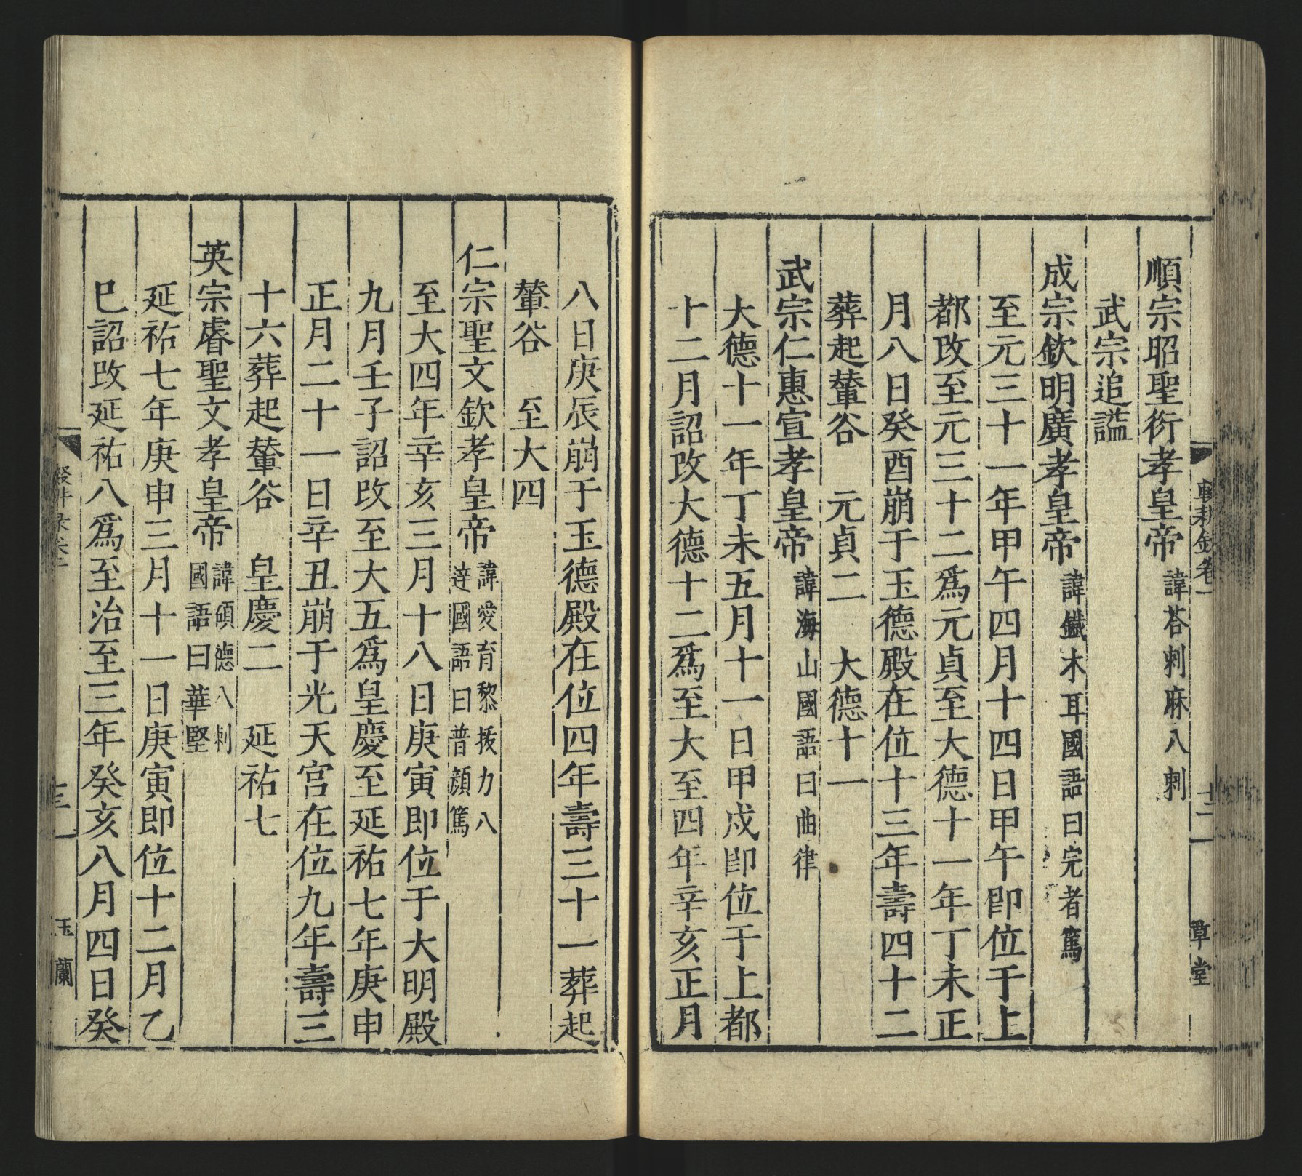 順宗昭聖衍孝皇帝諱荅剌麻八剌
武宗追謚
成宗欽明廣孝皇帝諱鐵木耳國語曰完者篤
至元三十一年甲午四月十四日甲午卽位于上
都改至元三十二爲元貞至大德十一年丁未正
月八日癸酉崩于玉德殿在位十三年壽四十二
葬起輦谷 元貞二 大德十一
武宗仁惠宣孝皇帝諱海山國語曰曲律
大德十一年丁未五月十一日甲戌卽位于上都
十二月詔改大德十二爲至大至四年辛亥正月
八日庚辰崩于玉德殿在位四年壽三十一葬起
輦谷 至大四
仁宗聖文欽孝皇帝諱愛育黎拔力八
達國語曰普顏篤
至大四年辛亥三月十八日庚寅即位于大明殿
九月壬子詔改至大五爲皇慶至延祐七年庚申
正月二十一日辛丑崩于光天宮在位九年壽三
十六葬起輦谷 皇慶二 延祐七
英宗睿聖文孝皇帝諱碩德八剌
國語曰華堅
延祐七年庚申三月十一日庚寅即位十二月乙
巳詔改延祐八爲至治至三年癸亥八月四日癸
輟耕錄卷一
十二
草堂
玉蘭